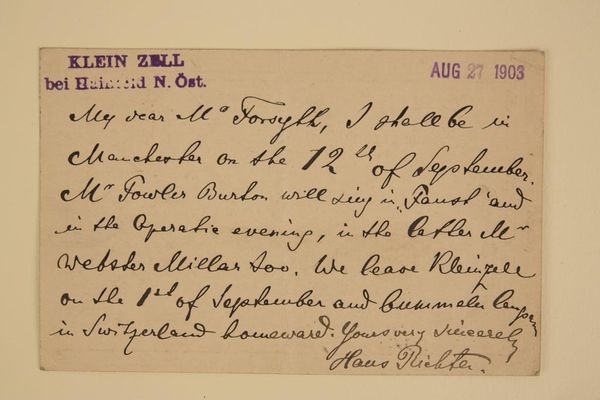 KLEIN ZELL
bei Hainfeld N. Öst.
AUG 27 1903
My dear Mr Forsyth, I shall be in
Manchester on the 12th of September.
Mr Fowler Burton will sing in "Faust" and
in the Operatic evening, in the latter Mr
Webster Millar too. We leave Kleinzell
on the 1st of September and bummeln
in Switzerland homeward. Yours very sincerely
Hans Richter.